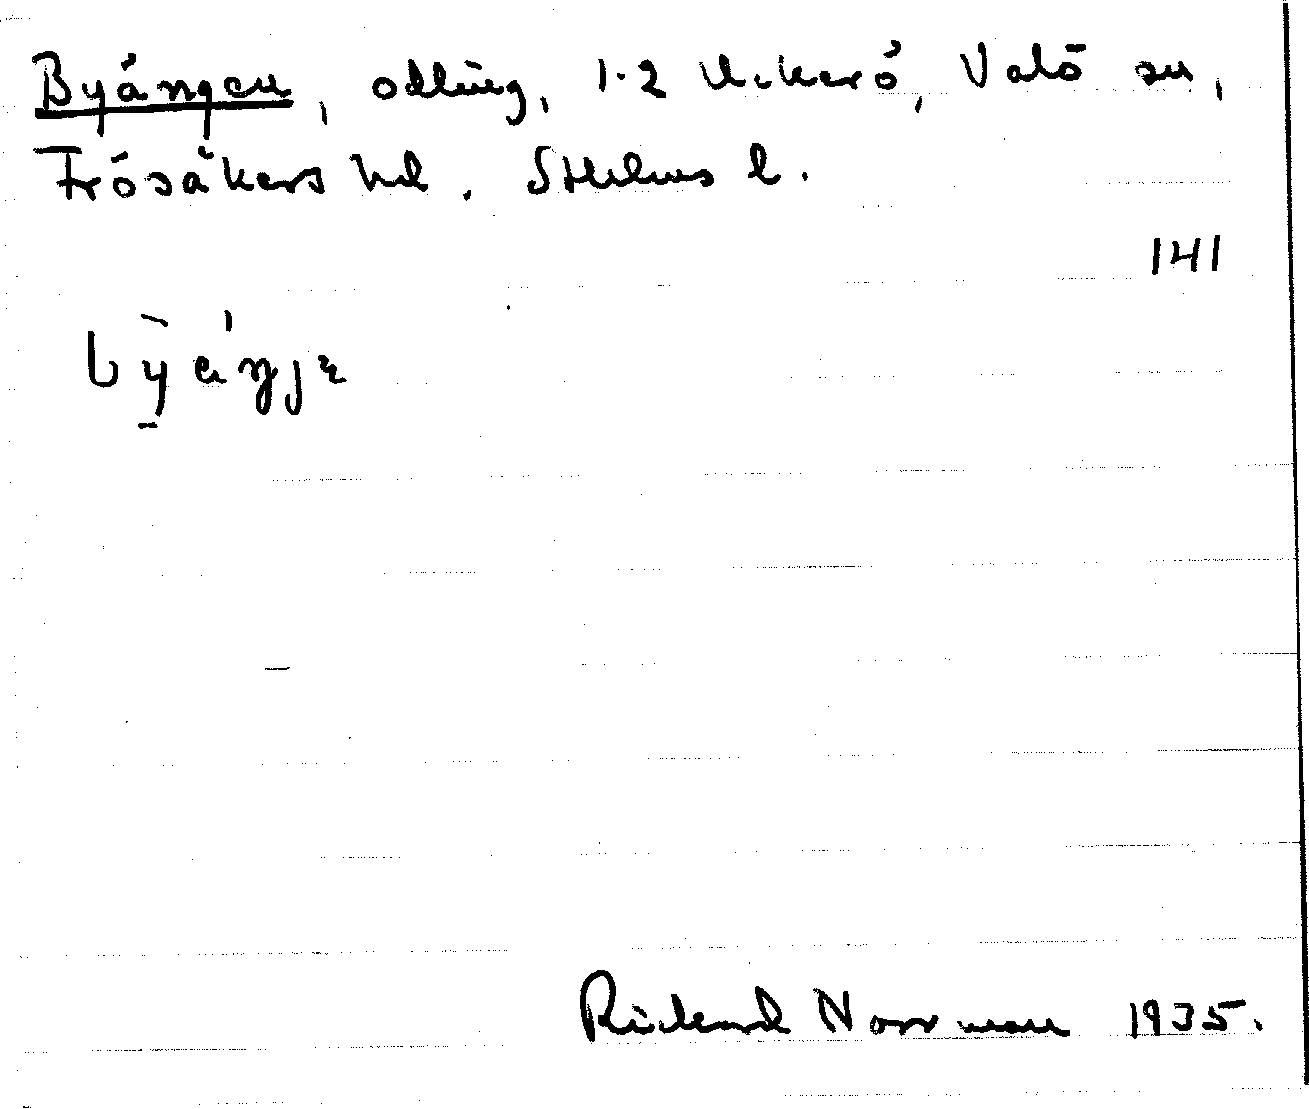 Byängen, odling, 1-2 Uckerö, Valö sn,
Frösåkers hd. Sthlms l.
141
Richard Norrman 1935.